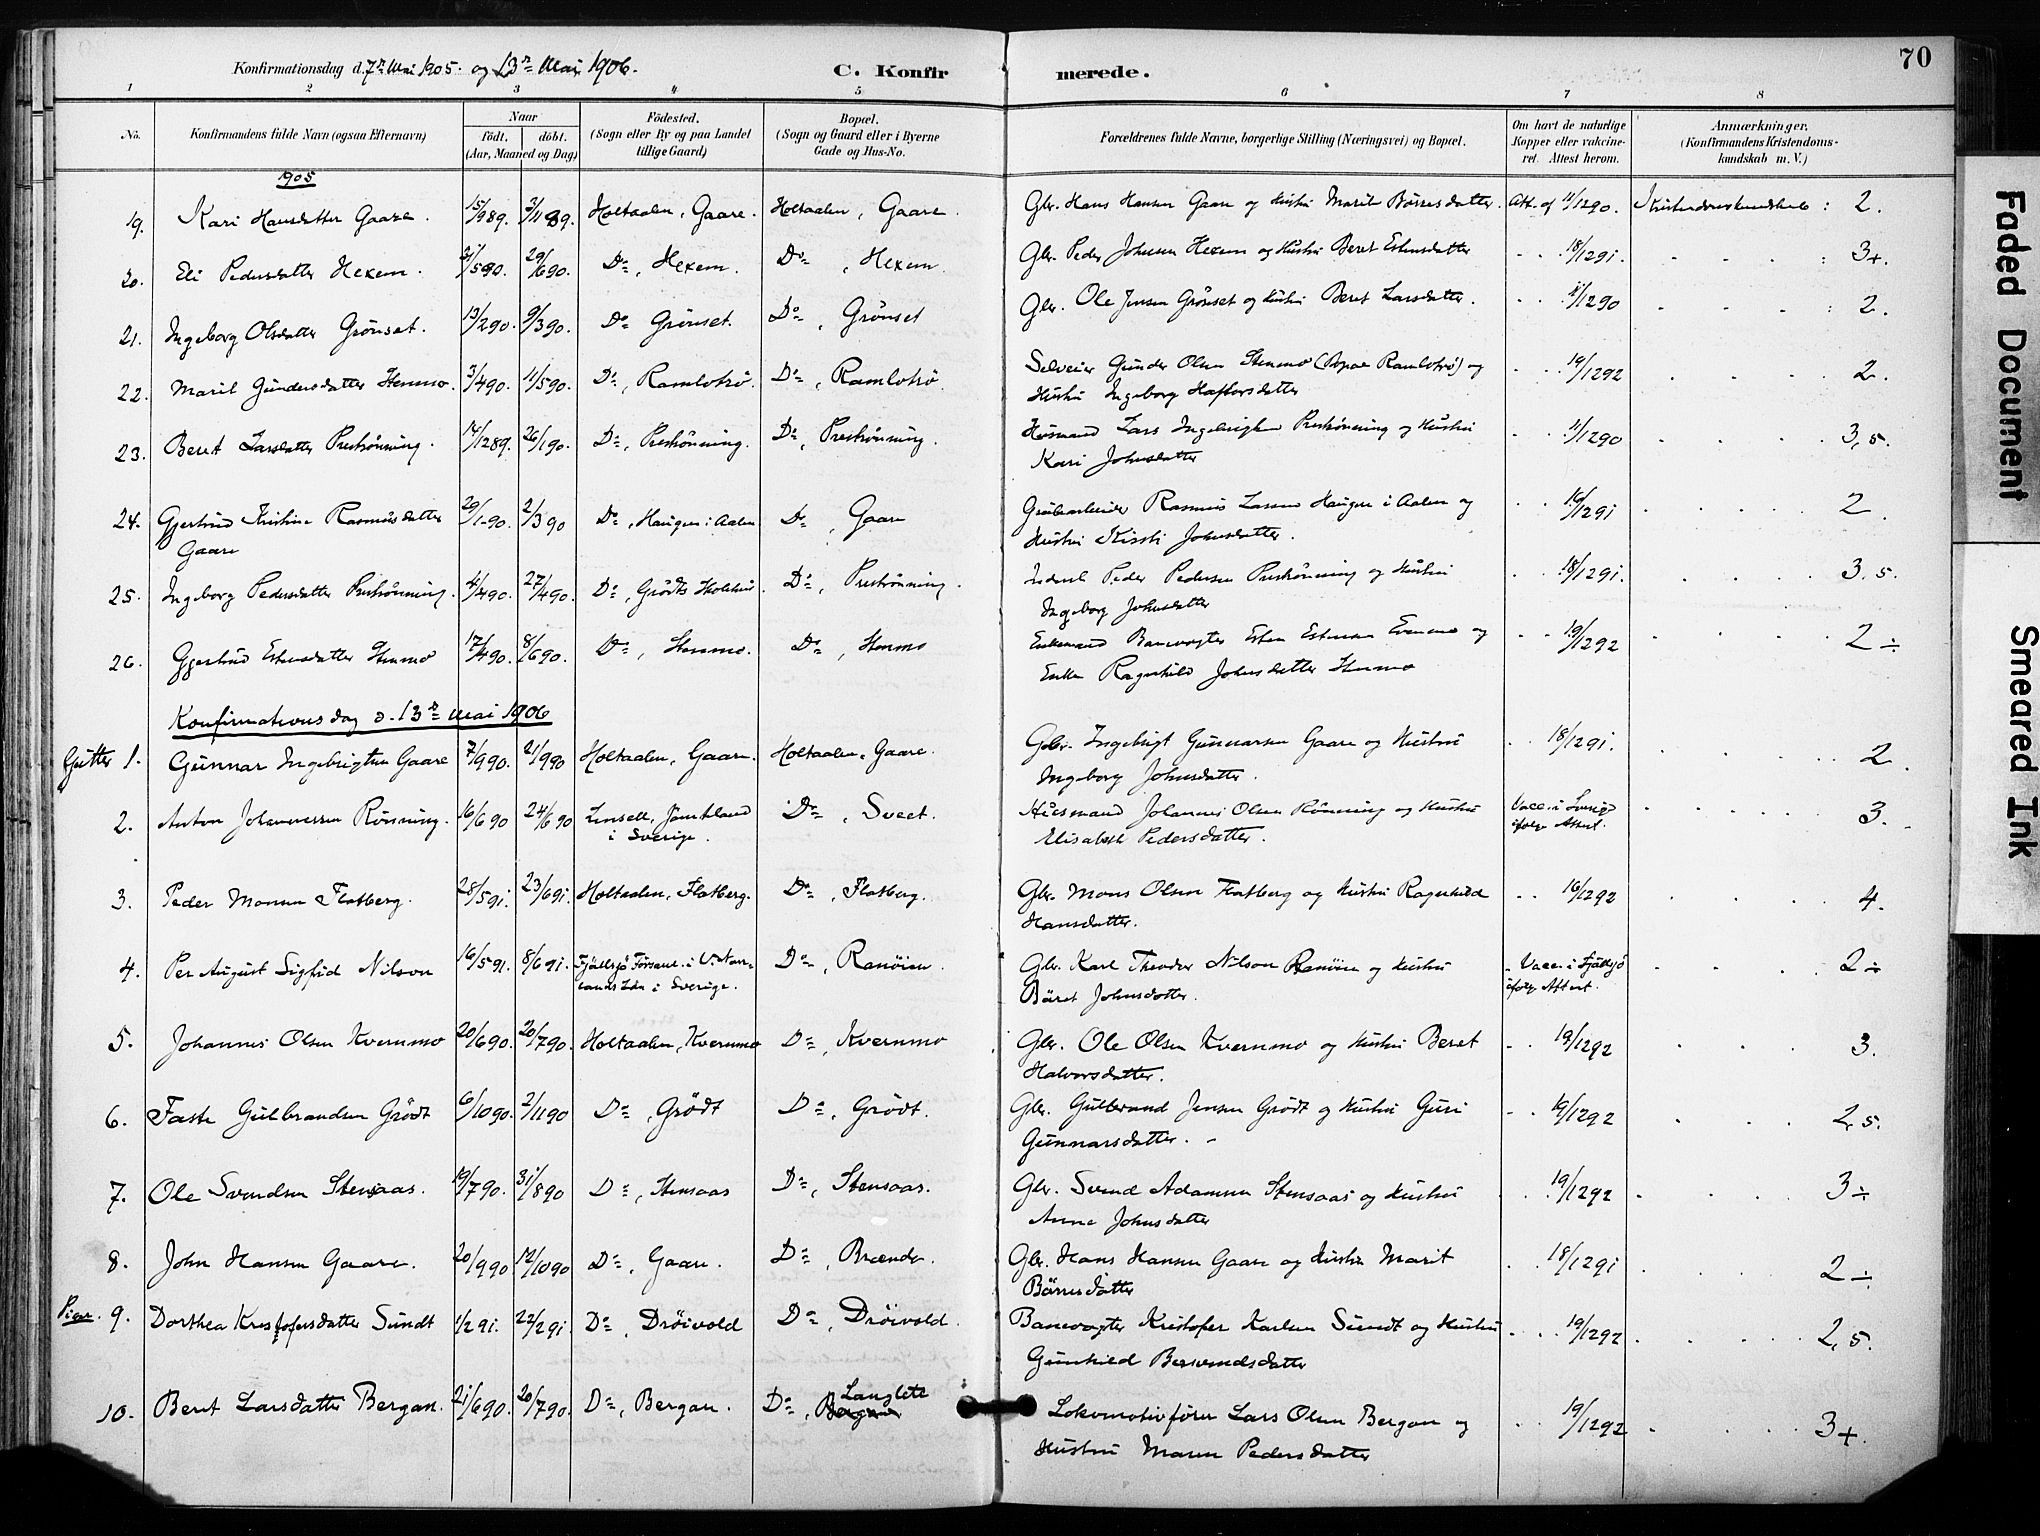 70
Konfirmationsdag d. 7de Mai 1905. og 13de Mai 1906.
C. Konfirmerede.
1 2 3 4 5 6 7 8
No. Konfirmandens fulde Navn (ogsaa Efternavn) Naar født. døbt. (Aar, Maaned og Dag) Fødested. (Sogn eller By og paa Landet tillige Gaard) Bopæl. (Sogn og Gaard eller i Byerne Gade og Hus-No. Forældrenes fulde Navne, borgerlige Stilling (Næringsvei) og Bopæl. Om havt de naturlige Kopper eller vakcineret. Attest herom. Anmærkninger. (Konfirmandens Kristendomskundskab m. V.)
1905
19. Kari Hansdatter Gaare. 15/989. 3/1189. Holtaalen, Gaare. Holtaalen, Gaare. Gbr. Hans Hansen Gaare og Hustru Marit Børresdatter. Att. af 11/1290. Kristendomskundskab: 2.
20. Eli Pedersdatter Hexem. 31/590. 29/690. Do, Hexem. Do, Hexem. Gbr. Peder Johnsen Hexem og Hustru Beret Estensdatter 18/1291. 3+.
21. Ingeborg Olsdatter Grønset. 13/290. 9/390. Do Grønset. Do, Grønset Gbr. Ole Jensen Grønset og Hustru Beret Larsdatter. 11/1290 2.
22. Marit Gundersdatter Stenmo. 3/490. 11/590. Do, Ramlotrø. Do, Ramlotrø. Selveier Gunder Olsen Stenmo (Bopæl Ramlotrø) og
Hustru Ingeborg Haftorsdatter 19/1292 2.
23. Beret Larsdatter Prestrønning. 17/1289. 26/190. Do, Prestrønning. Do, Prestrønning. Husmand Lars Ingebrigtsen Prestrønning og Hustru
Kari Johnsdatter 11/1290 3,5.
24. Gjertrud Kristine Rasmusdatter
Gaare 29/190. 2/390 Do, Haugen i Aalen Do, Gaare Grubearbeider Rasmus Larsen Haugen i Aalen og
Hustru Kirsti Johnsdatter. 16/1291 2.
25. Ingeborg Pedersdatter Prestrønning. 4/490. 27/490. Do, Grødts Do, Prestrønning. Peder Pedersen Prestrønning og Hustru
Ingeborg Johnsdatter 18/1291. 3,5.
26. Gjertrud Estensdatter Stenmo 17/490. 8/690. Do, Stenmo. Do, Stenmo Enkemand Banevogter Esten Estensen Evenmo og
Enke Ragnhild Johnsdatter Stenmo 19/1292 2÷
Konfirmationsdag d. 13de Mai 1906
Gutter 1. Gunnar Ingebrigtsen Gaare 7/990. 21/990 Holtaalen, Gaare. Holtaalen, Gaare. Gbr. Ingebrigt Gunnarsen Gaare og Hustru
Ingeborg Johnsdatter. 18/1291. 2.
2. Anton Johannessen Rønning. 16/690 24/690 Linsell, Jämtland
i Sverige. Do, Sveet. Husmand Johannes Olsen Rønning og Hustru
Elisabeth Pedersdatter. Vacc. i Sverige
ifølge Attest. 3.
3. Peder Monsen Flatberg. 28/591. 23/691. Holtaalen, Flatberg. Do, Flatberg. Gbr. Mons Olsen Flatberg og Hustru Ragnhild
Hansdatter. 16/1292 4.
4. Per August Sigfrid Nilson 16/591. 8/691. Fjällsjö Församl. i V. Norr-
lands Län i Sverige. Do, Ranøien. Gbr. Karl Theodor Nilson Ranøien og Hustru
Bäret Johnsdotter. Vacc. i Fjällsjö
ifølge Attest. 2÷
5. Johannes Olsen Kvernmo 20/690. 20/790. Holtaalen, Kvernmo Do, Kvernmo Gbr. Ole Olsen Kvernmo og Hustru Beret
Halvorsdatter. 19/1292 3.
6. Faste Gulbrandsen Grødt 6/1090. 2/1190 Do, Grødt Do, Grødt. Gbr. Gulbrand Jensen Grødt og Hustru Guri
Gunnarsdatter. 19/1292 2,5.
7. Ole Svendsen Stensaas. 19/790. 31/890 Do, Stensaas Do, Stensaas. Gbr. Svend Adamsen Stensaas og Hustru
Anne Johnsdatter 19/1292 3÷
8. John Hansen Gaare. 20/990 12/1090 Do, Gaare. Do, Brænde. Gbr. Hans Hansen Gaare og Hustru Marit
Børresdatter 18/1291 2÷
Piger. 9. Dorthea Kristofersdatter Sundt 1/291. 22/291 Do, Drøivold Do, Drøivold. Banevogter Kristofer Karlsen Sundt og Hustru
Gunhild Bersvendsdatter 19/1292 2,5.
10. Beret Larsdatter Bergan. 21/690. 20/790. Do, Bergan. Do, Langlete Bergan Lokomotivfører Lars Olsen Bergan og
Hustru Maren Pedersdatter 19/1292 3+.
Faded Document
Smeared Ink